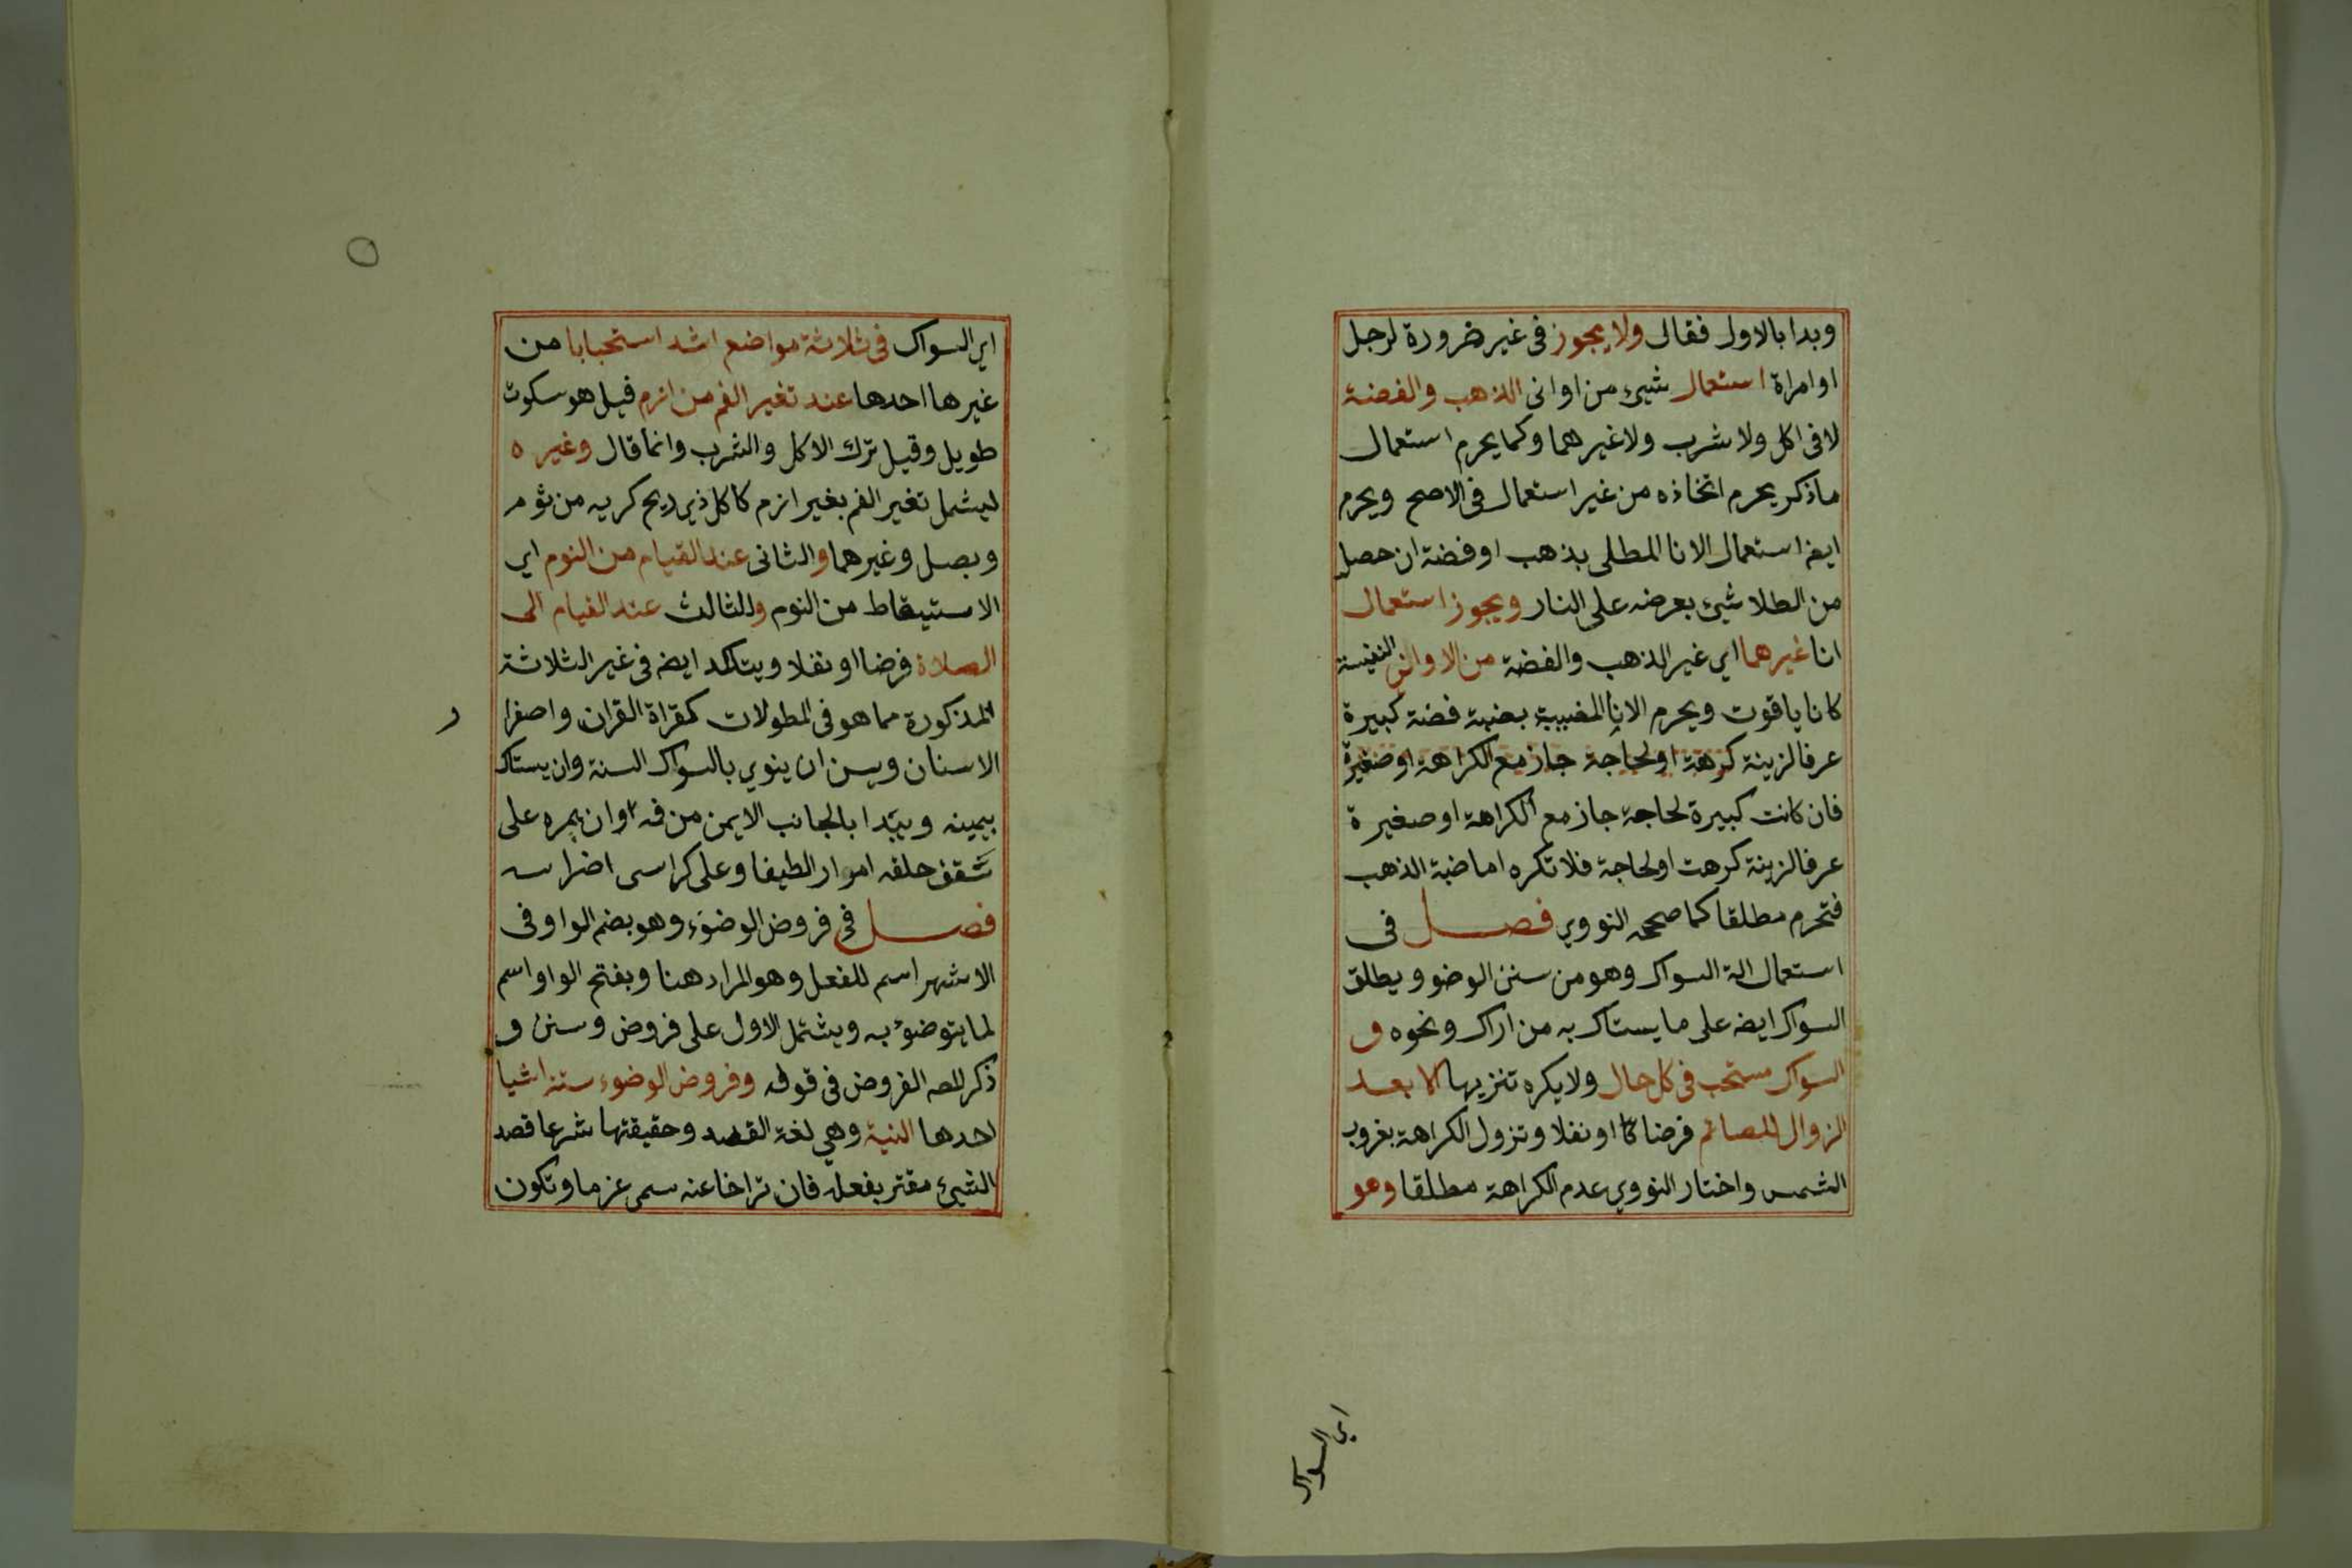 وبدا بالاول فقال ولا يجوز في غير ضرورة لرجل
او امراة استعمال شيئ من اواني الذهب والفضة
لا في اكل ولا شرب ولا غيرهما وكما يحرم استعمال
ماذكر يحرم اتخاذه من غير استعمال في الاصح ويحرم
ايضا استعمال الانا المطلى بذهب او فضة ان حصل
من الطلا شيئ بعرضه على النار ويجوز استعمال
انا غيرهما اي غير الذهب والفضة من الاواني النفيسة
كانا ياقوت ويحرم الانا المضببة بضبة فضة كبيرة
عرفا لزينة كرهة او لحاجة جاز مع الكراهة او صغيرة
فان كانت كبيرة لحاجة جاز مع الكراهة او صغيرة
عرفا لزينة كرهت او لحاجة فلا تكره اما ضبة الذهب
فتحرم مطلقا كما صححه النووي فصل في
استعمال الة السواك وهو من سنن الوضو ويطلق
السواك ايضه على ما يستاك به من اراك ونحوه و
السواك مستحب في كل حال ولا يكره تنزيها الا بعد
الزوال للصائم فرضا كا او نفلا وتزول الكراهة بغروب
الشمس واختار النووي عدم الكراهة مطلقا وهو
اي السواك
اي السواك في ثلاثة مواضع اشد استحبابا من
غيرها احدها عند تغير الفم من ازم قيل هو سكوت
طويل وقيل ترك الاكل والشرب وانما قال وغيره
ليشمل تغير الفم بغير ازم كاكل ذي ريح كريه من ثوم
وبصل وغيرهما والثاني عند القيام من النوم اي
الاستيقاط من النوم والثالث عند القيام الى
الصلاة فرضا او نفلا ويتاكد ايضه في غير الثلاثة
المذكورة مما هو في المطولات كقراة القران واصفرا ر
الاسنان ويسن ان ينوي بالسواك السنة وان يستاك
بيمينه ويبدا بالجانب الايمن من فمه وان يمره على
سقف حلقه امرارا لطيفا وعلى كراسى اضراسه
فصل في فروض الوضوء وهو بضم الواو في
الاشهر اسم للفعل وهو المراد هنا وبفتح الواو اسم
لما يتوضؤ به ويشتمل الاول على فروض وسنن و
ذكر المصه الفروض في قوله وفروض الوضوء ستة اشيا
احدها النية وهي لغة القصد وحقيقتها شرعا قصد
الشيئ مقتر بفعله فان تراخا عنه سمى عزما وتكون